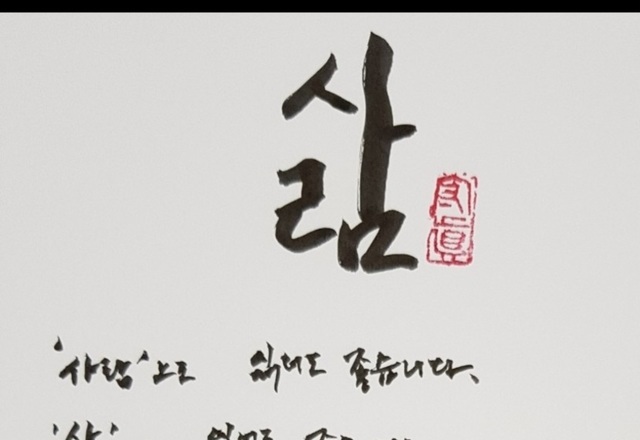 삶
'사람'으로 읽어도 좋습니다.